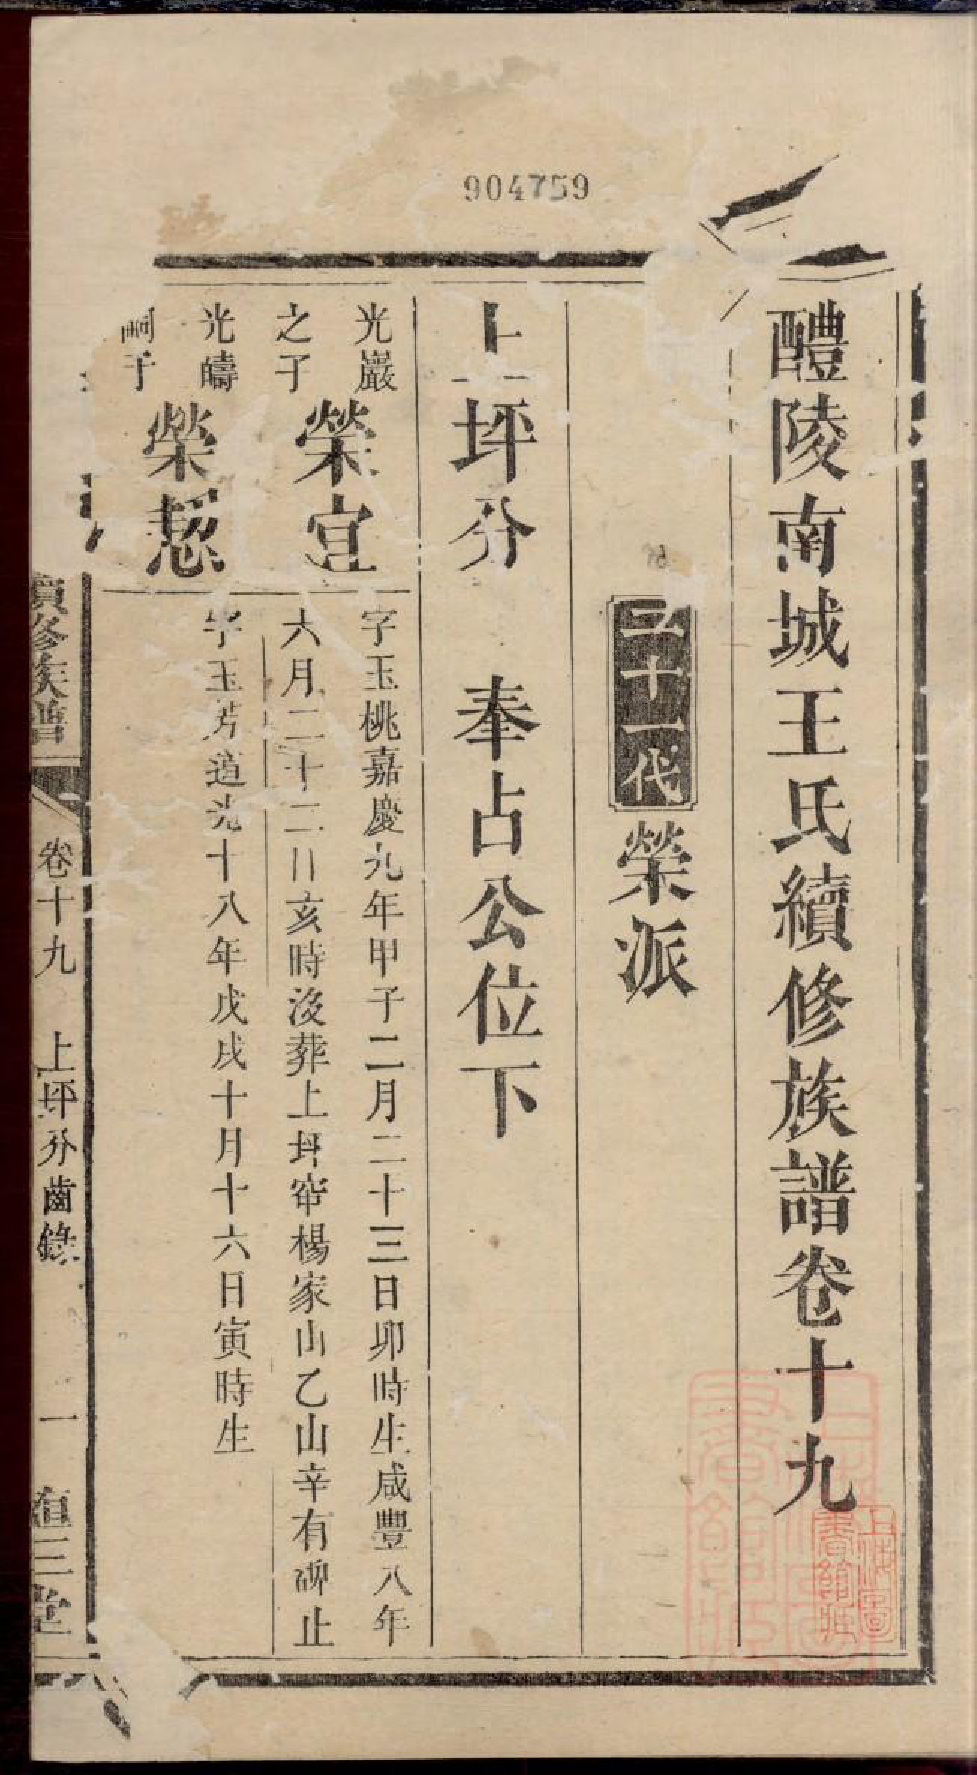 904759
醴陵南城王氏續修族譜卷十九
二十一代 榮派
上坪分 奉占公位下
光巖之子 榮宜
字玉桃嘉慶九年甲子二月二十三日卯時生咸豐八年
六月二十二日亥時沒葬上坪窂楊家山乙山辛有碑止
光疇嗣子 榮恝
字玉芳道光十八年戊戌十月十六日寅時生
續修族譜 卷十九 上坪分齒錄 一 植三堂
上海圖書館藏
上海圖書館藏